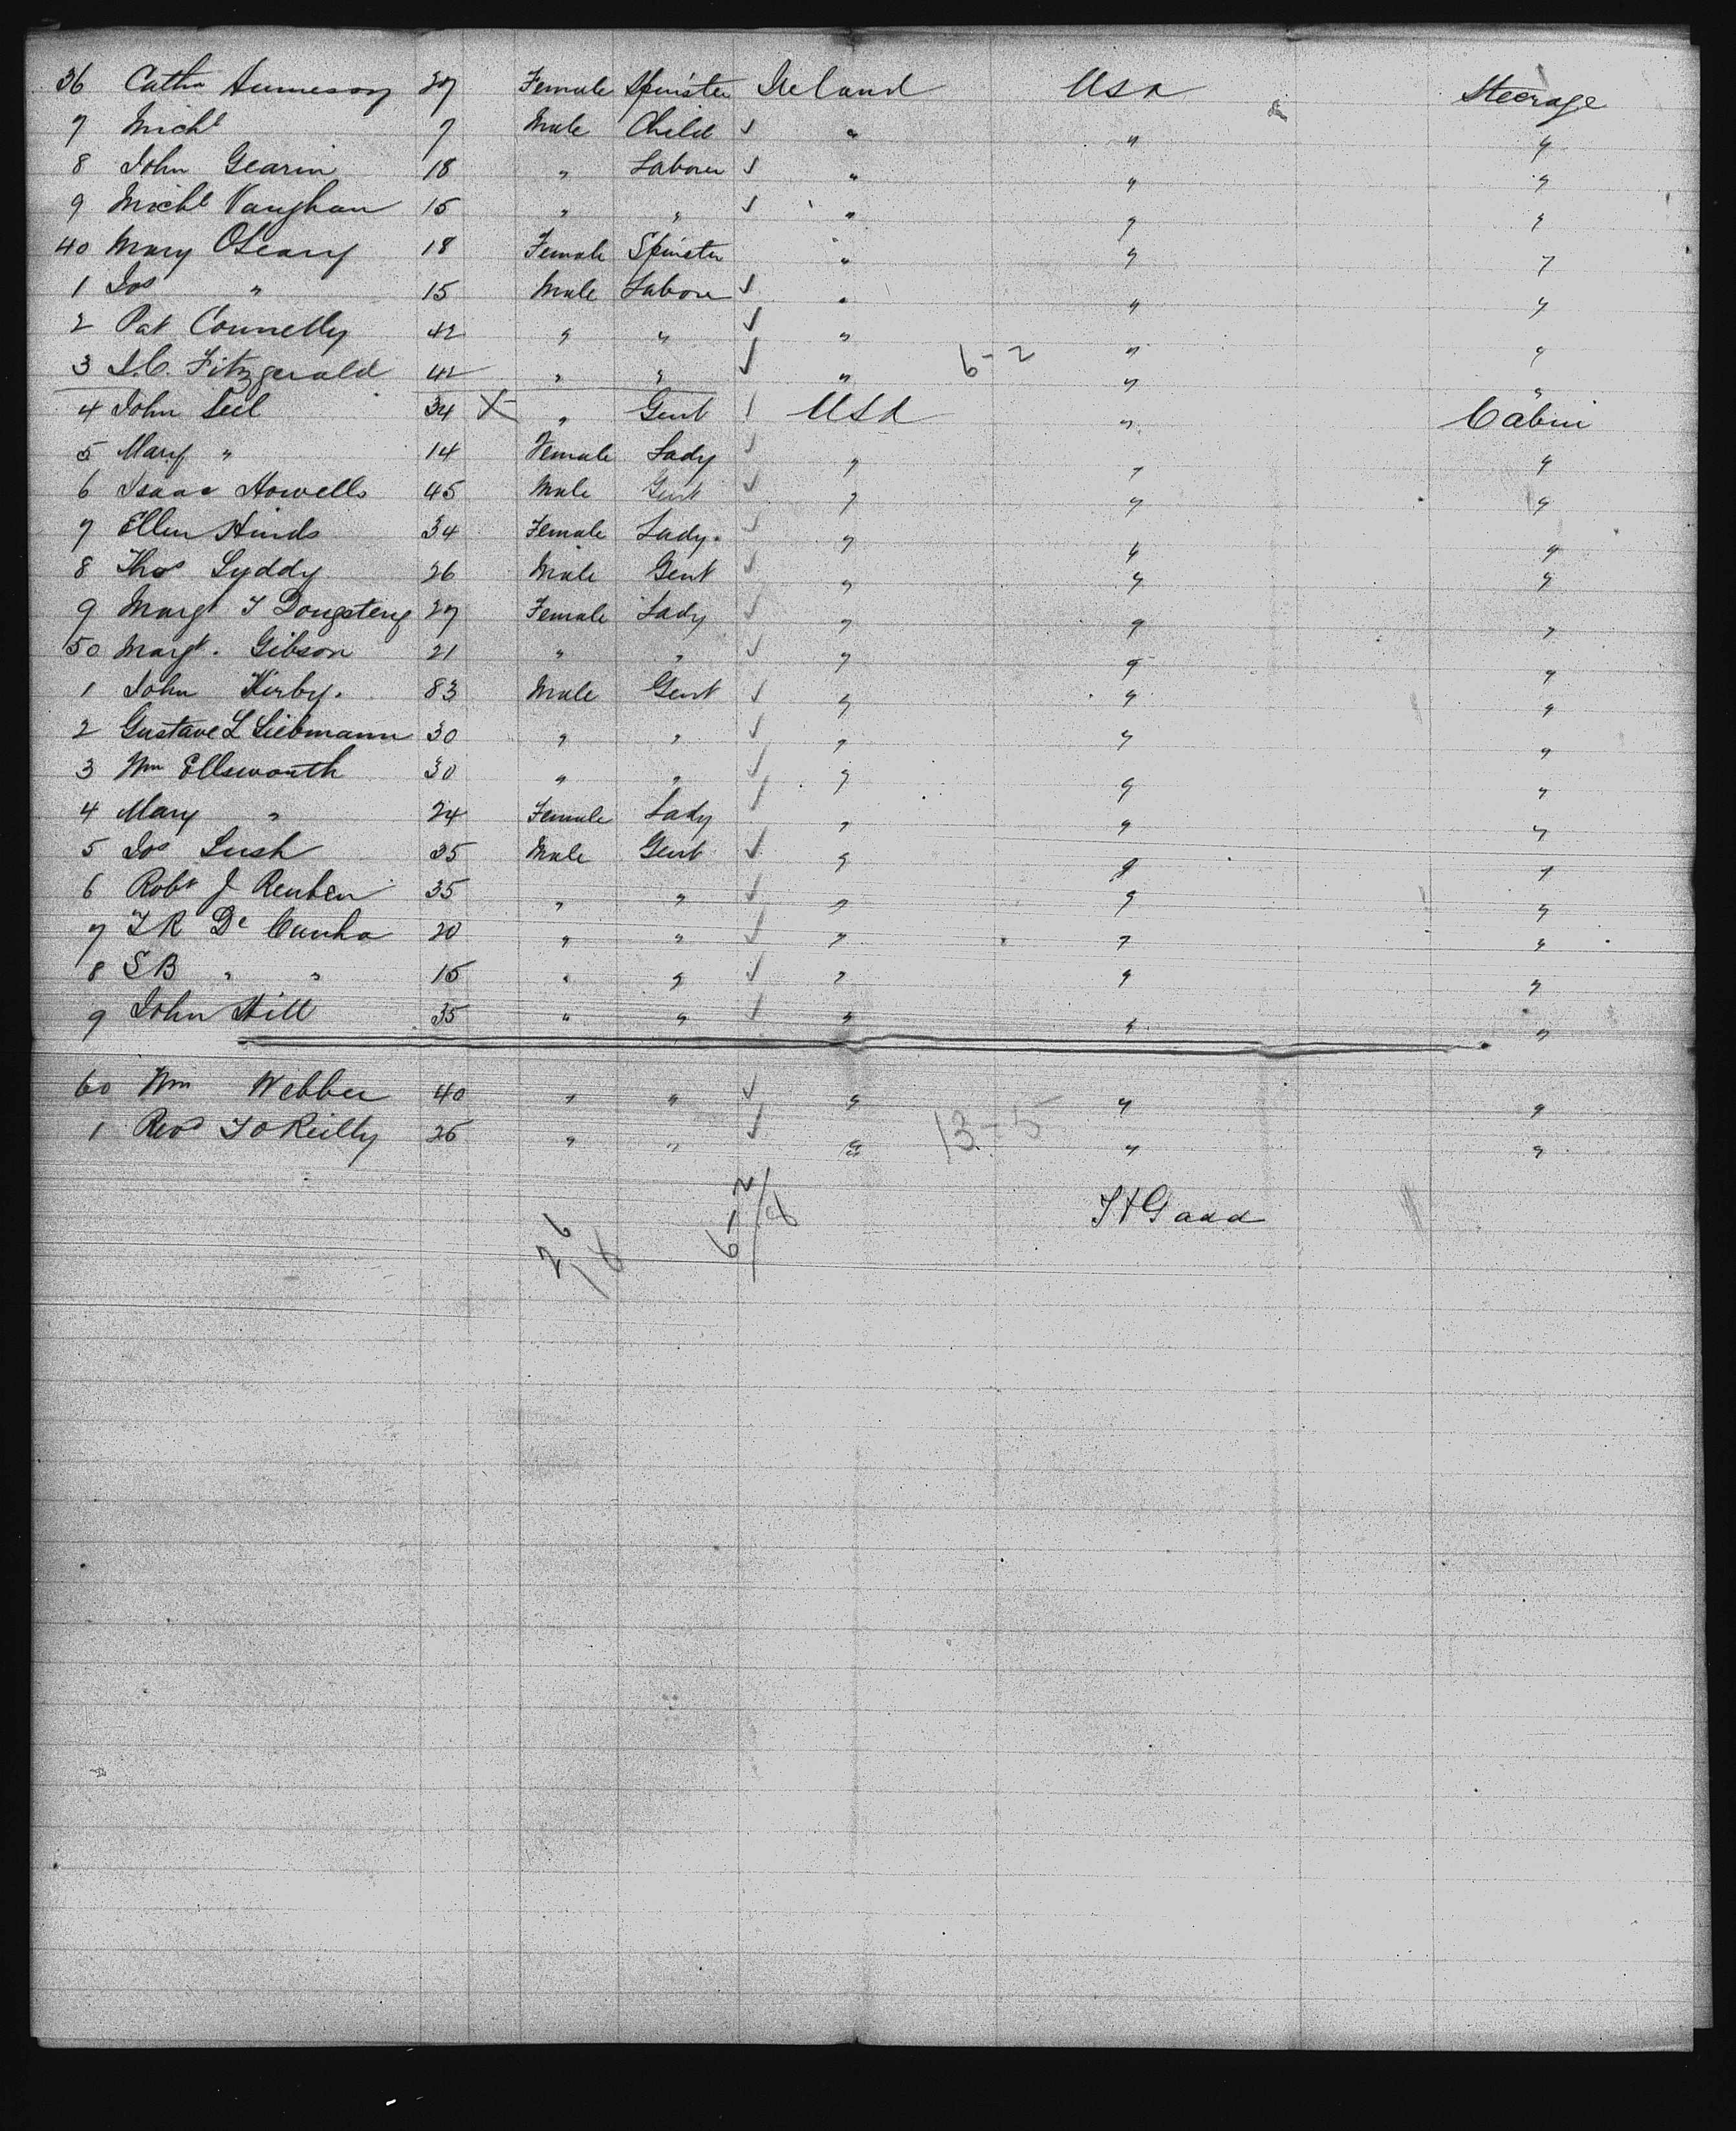 36 Cath Hennessy 27 Female Spinster Ireland USA Steerage
7 Michl 7 Male Child ✓ " " "
8 John Gearin 18 " Laborer ✓ " " "
9 Michl Vaughan 15 " " ✓ " " "
40 Mary OLeary 18 Female Spinster " " "
1 Jos " 15 Male Laborer ✓ " " "
2 Pat Connelly 42 " " ✓ " " "
3 Fitzgerald 42 " " ✓ " 6-2 " "
4 John 34 X " Gent USA " Cabin
5 Mary " 14 Female Lady ✓ " " "
6 Isaac Howells 45 Male Gent ✓ " " "
7 Ellen Hinds 34 Female Lady ✓ " " "
8 Thos Lyddy 26 Male Gent ✓ " " "
9 Margt 27 Female Lady ✓ " " "
50 Margt. Gibson 21 " " ✓ " " "
1 John Kirby. 83 Male Gent ✓ " " "
2 Gustave L Liebmann 30 " " ✓ " " "
3 Wm Ellsworth 30 " " ✓ " " "
4 Mary " 24 Female Lady ✓ " " "
5 Jos Lush 35 Male Gent ✓ " " "
6 Robt J Reuben 35 " " ✓ " " "
7 De Cunha 20 " " ✓ " " "
8 SB " " 15 " " ✓ " " "
9 John Hill 35 " " ✓ " " "
60 Wm Webber 40 " " ✓ " " "
1 Revd OReilly 26 " " ✓ " 13-5 " "
6-2
26